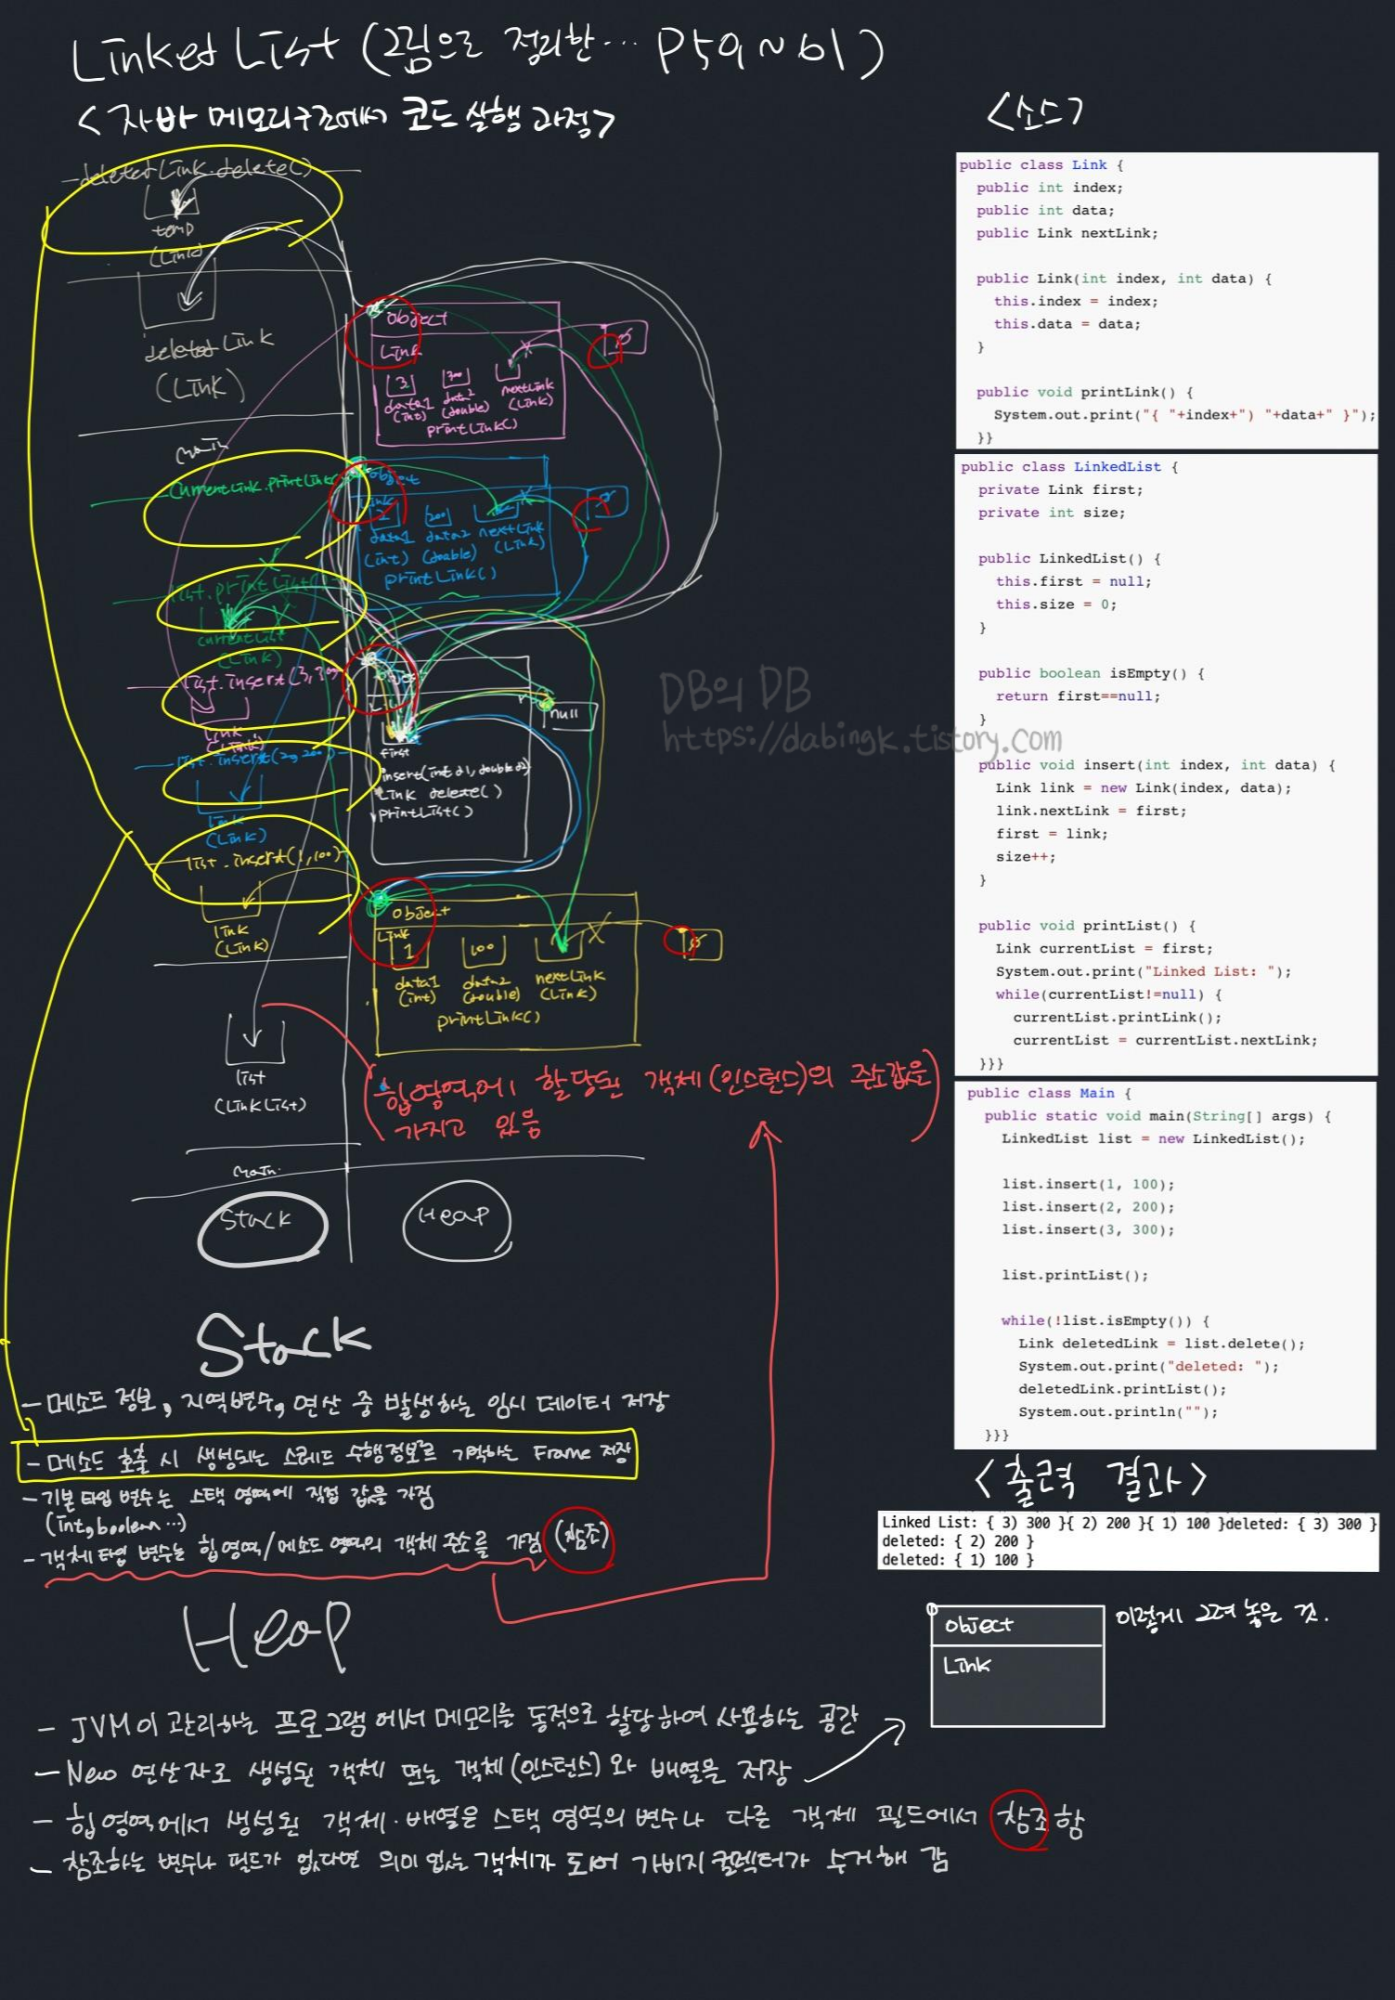 Linked List (그림으로 정리한... P59~61)
<자바 메모리구조에서 코드 실행 과정>
deletedLink.delete()
temp
(Link)
deleted Link
(Link)
main
currentLink.printLink
list.printList()
currentList
(Link)
list.insert(3,300
link
(Link)
list.insert(2,200)
link
(Link)
list.insert(1,100)
link
(Link)
list
(LinkList)
main
Stack
Object
Link
3
300
data1
(int)
data2
(double)
nextLink
(Link)
printLink()
Object
Link
2
200
data1 data2 nextLink
(int) (double) (Link)
printLink()
null
first
insert(int d1, double d2)
Link delete()
printList()
Object
Link
1
100
data1
(int)
data2
(double)
nextLink
(Link)
printLink()
(힙영역에 할당된 객체(인스턴스)의 주소값을
가지고 있음)
Heap
DB의 DB
https://dabingk.tistory.com
<소스>
public class Link {
public int index;
public int data;
public Link nextLink;
public Link(int index, int data) {
this.index = index;
this.data = data;
}
public void printLink() {
System.out.print("{ "+index+") "+data+" }");
}}
public class LinkedList {
private Link first;
private int size;
public LinkedList() {
this.first = null;
this.size = 0;
}
public boolean isEmpty() {
return first==null;
}
public void insert(int index, int data) {
Link link = new Link(index, data);
link.nextLink = first;
first = link;
size++;
}
public void printList() {
Link currentList = first;
System.out.print("Linked List: ");
while(currentList!=null) {
currentList.printLink();
currentList = currentList.nextLink;
}}}
public class Main {
public static void main(String[] args) {
LinkedList list = new LinkedList();
list.insert(1, 100);
list.insert(2, 200);
list.insert(3, 300);
list.printList();
while(!list.isEmpty()) {
Link deletedLink = list.delete();
System.out.print("deleted: ");
deletedLink.printList();
System.out.println("");
}}}
<출력 결과>
Linked List: { 3) 300 }{ 2) 200 }{ 1) 100 }deleted: { 3) 300 }
deleted: { 2) 200 }
deleted: { 1) 100 }
Stack
- 메소드 정보, 지역변수, 연산 중 발생하는 임시 데이터 저장
- 메소드 호출 시 생성되는 스레드 수행정보를 기억하는 Frame 저장
- 기본 타입 변수는 스택 영역에 직접 값을 가짐
(int, boolean ...)
- 객체 타입 변수는 힙영역/메소드 영역의 객체 주소를 가짐 (참조)
Heap
- JVM이 관리하는 프로그램에서 메모리를 동적으로 할당하여 사용하는 공간
- New 연산자로 생성된 객체 또는 객체(인스턴스)와 배열을 저장
- 힙영역에서 생성된 객체·배열은 스택 영역의 변수나 다른 객체 필드에서 참조함
- 참조하는 변수나 필드가 없다면 의미 없는 객체가 되어 가비지 컬렉터가 수거해 감
Object
Link
이렇게 그려 놓은 것.